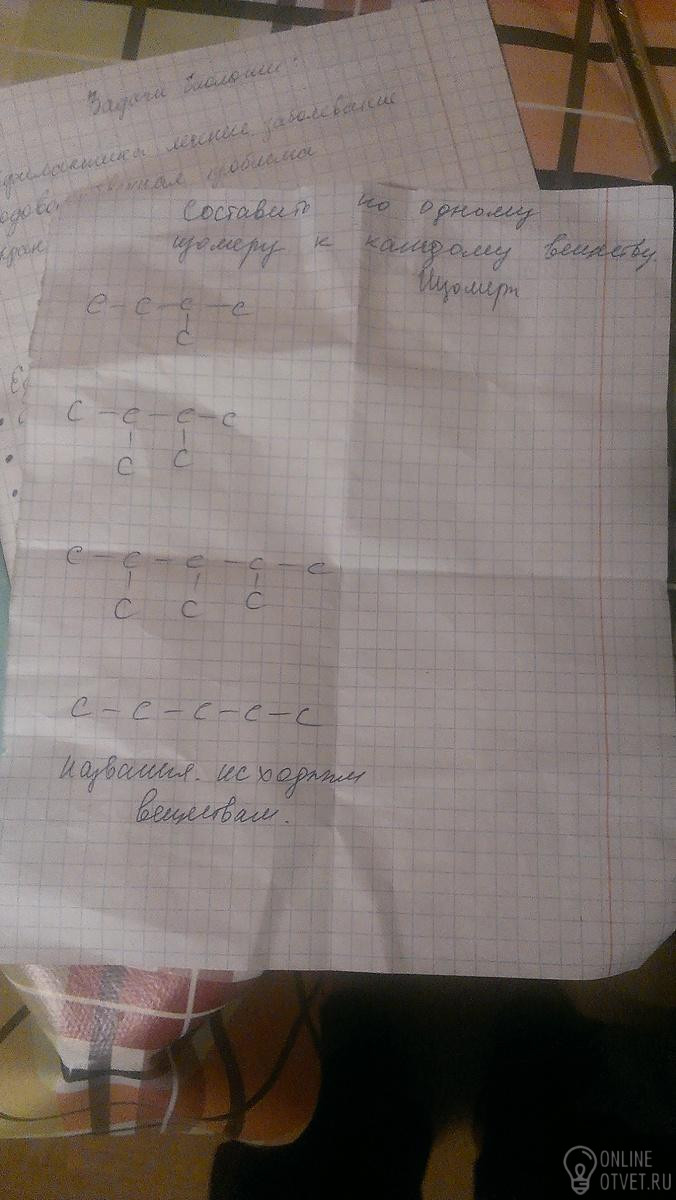 Задачи биологии:
лечение заболевание
проблема
Составить по одному
изомеру к каждому веществу.
Изомеры
C - C - C - C
C
C - C - C - C
C C
C - C - C - C - C
C C C
C - C - C - C - C
Названия. исходным
веществам.
ONLINE
OTVET.RU